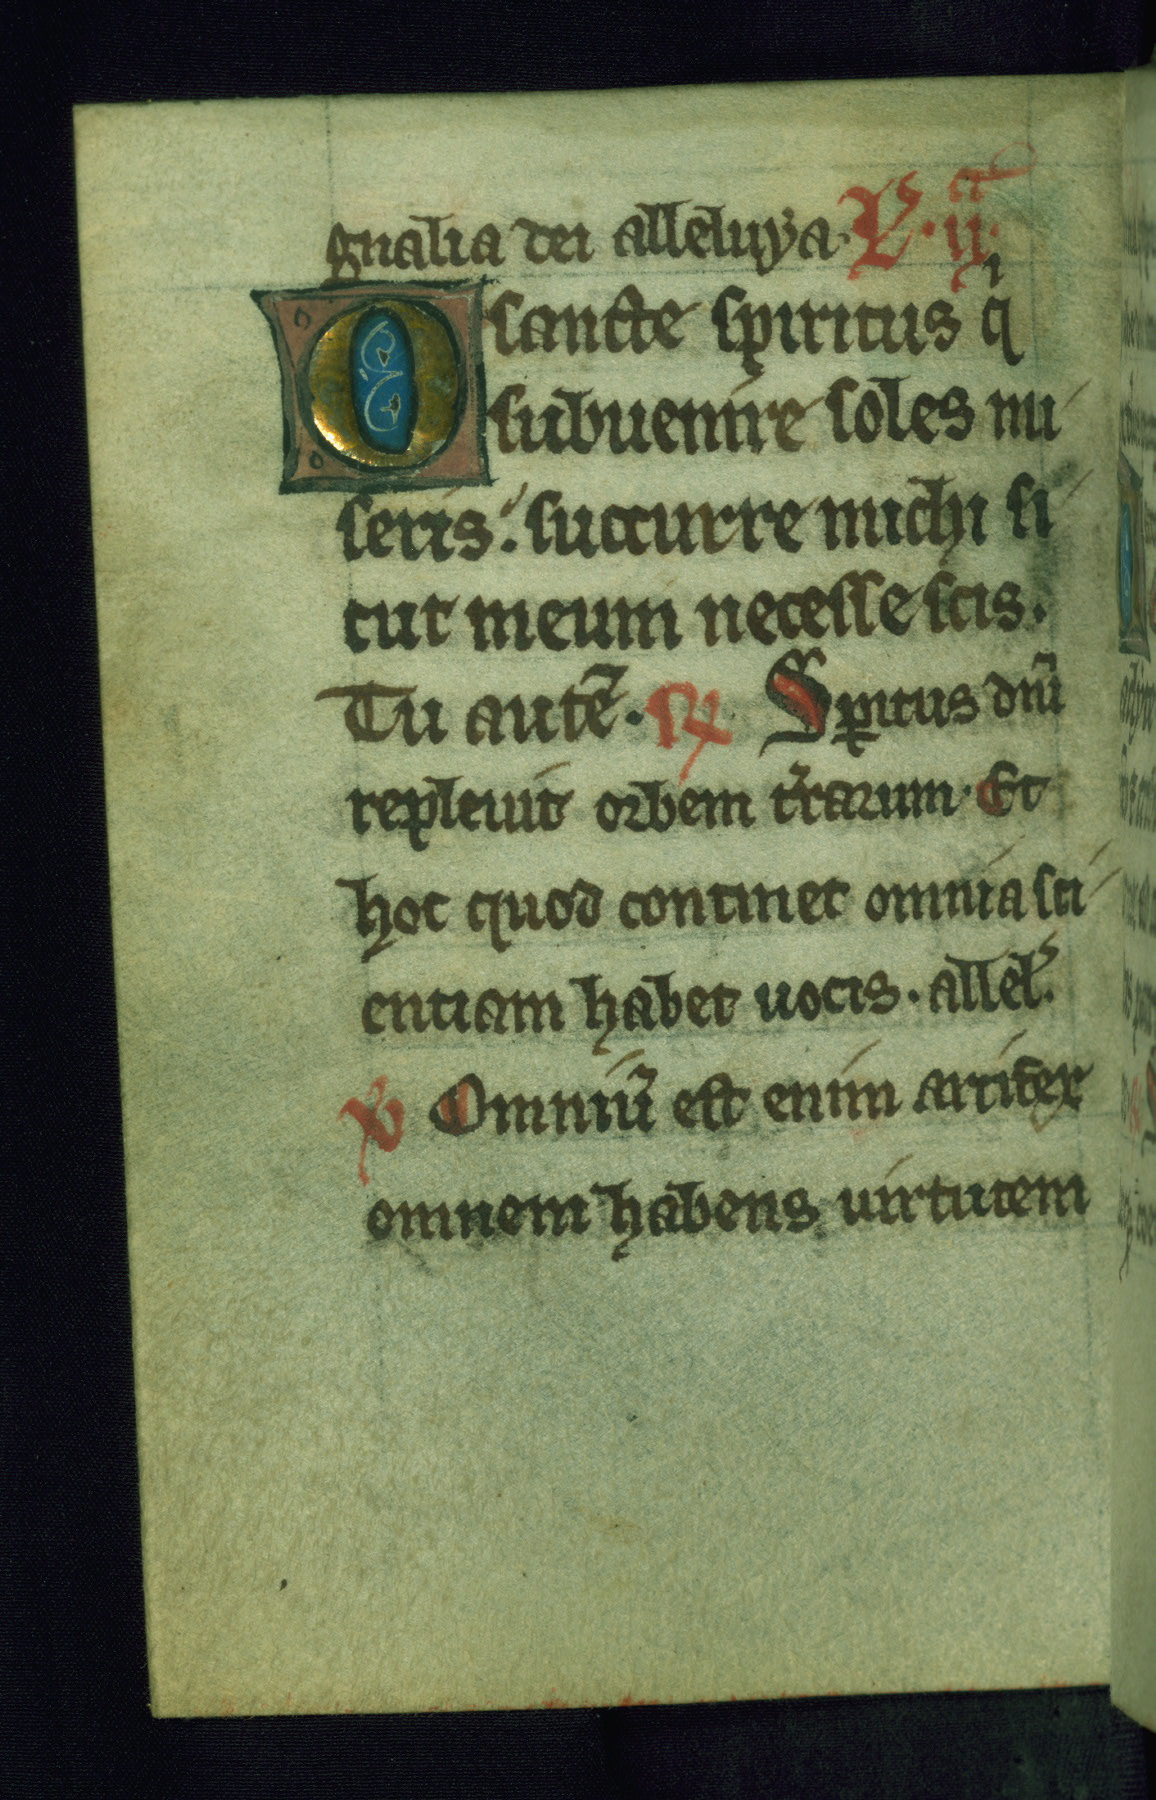 gnalia dei alleluya. L'. ij.ª
O sancte spiritus qi
subuenire soles mi
seris. succurre michi si
cut meum necesse scis.
Tu autē. ℟ Spiritus dn̄i
repleuit orbem t̄rarum. Et
hoc quod continet omnia sci
entiam habet uocis. allel'.
℣ Omniū est enim artifex
omnem habens uirtutem